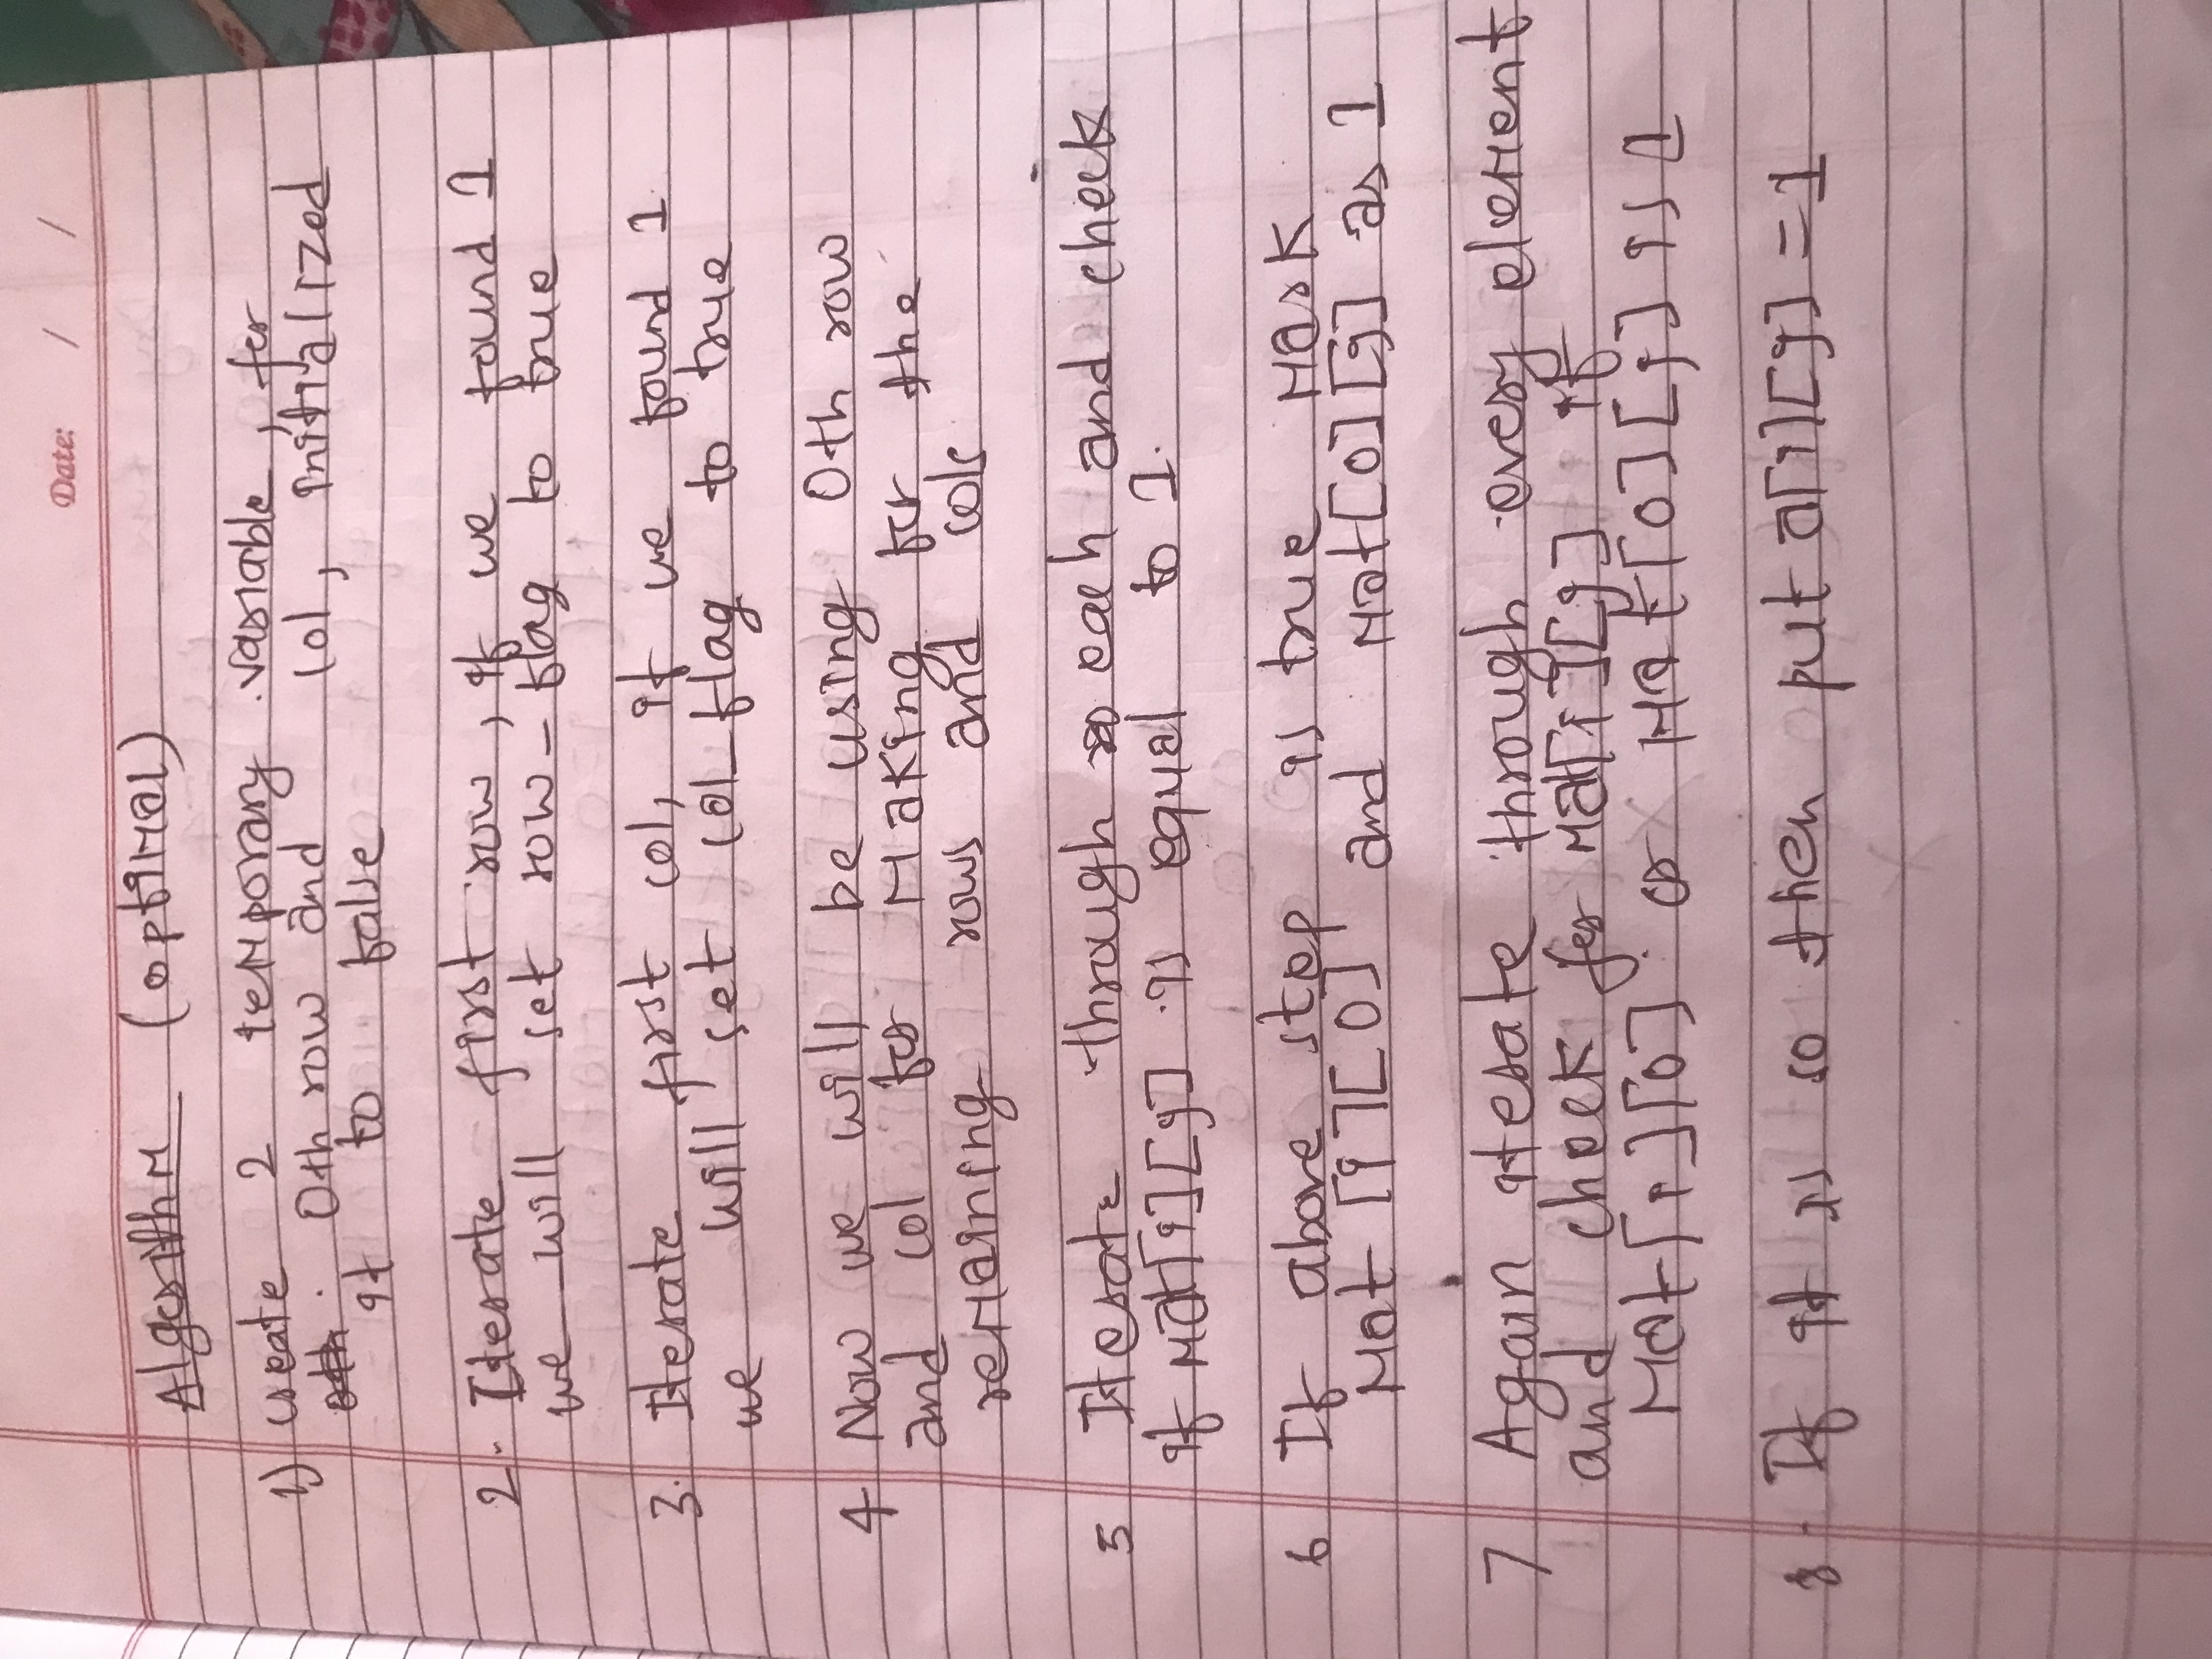 Date: / /
Algorithm (optimal)
1) create 2 temporary variable, for
0th row and col, initialized
it to false
2. Iterate first row, if we found 1
we will set row_flag to true
3. Iterate first col, if we found 1
we will set col_flag to true
4 Now we will be using 0th row
and col for making for the
remaining rows and cols
5 Iterate through each and check
if mat[i][j] is equal to 1.
6 If above step is true mark
mat [i][0] and mat[0][j] as 1
7 Again iterate through every element
and check for mat[i][j] if
mat[i][0] or mat[0][j] is 1
8 If it is so then put a[i][j] = 1